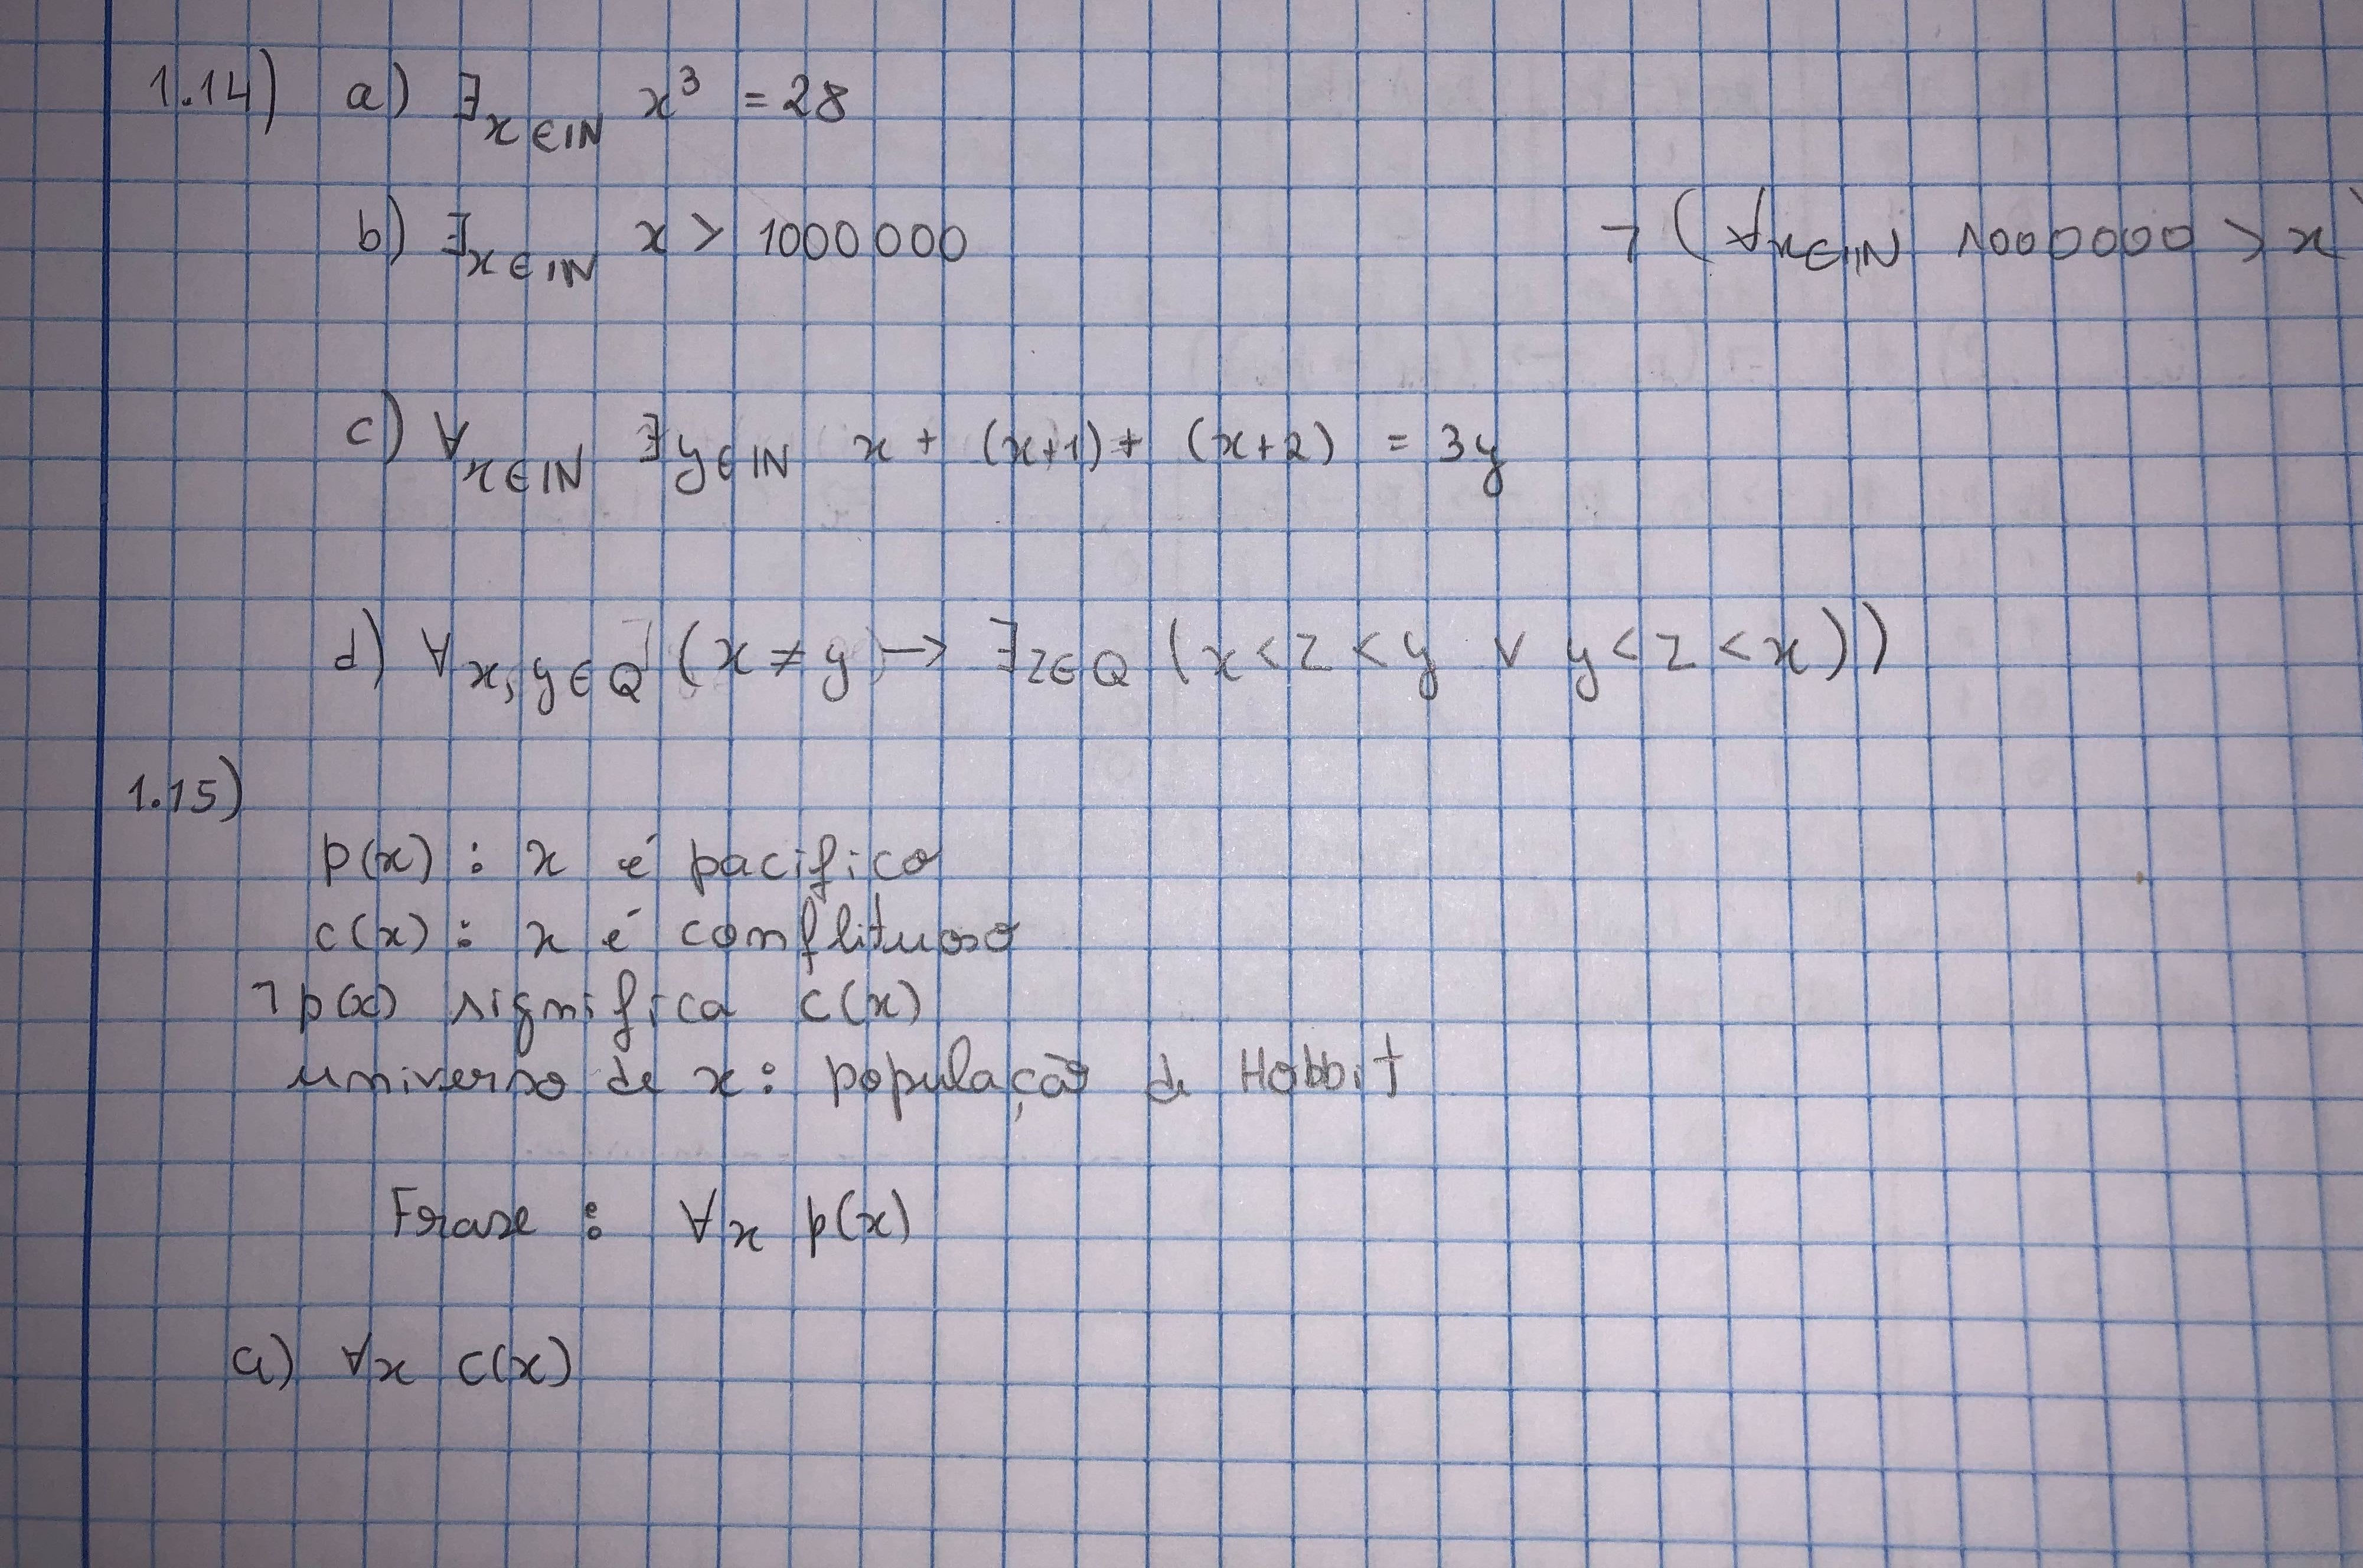 1.14) a) ∃x∈IN x³ = 28
b) ∃x∈IN x > 1000 000 ¬(∀x∈IN 1000000 > x)
c) ∀x∈IN ∃y∈IN x + (x+1) + (x+2) = 3y
d) ∀x,y∈Q (x ≠ y → ∃z∈Q (x < z < y ∨ y < z < x))
1.15)
p(x) : x é pacifico
c(x) : x é conflituoso
¬p(x) significa c(x)
universo de x : população de Hobbit
Frase : ∀x p(x)
a) ∀x c(x)